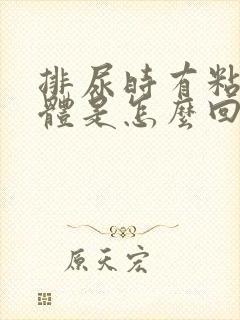 排尿時有粘
體是怎麼回
原天宏